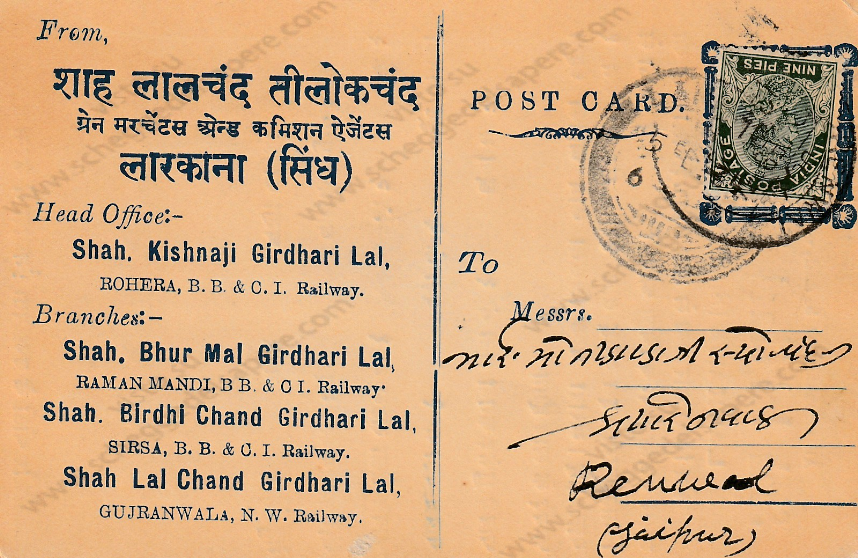 From,
शाह लालचंद तीलोकचंद
ग्रेन मरचेंटस ॲन्ड कमिशन ऐजेंटस
लारकाना (सिंध)
Head Office:-
Shah. Kishnaji Girdhari Lal,
ROHERA, B. B. & C. I. Railway.
Branches:-
Shah. Bhur Mal Girdhari Lal,
RAMAN MANDI, B B. & C I. Railway.
Shah. Birdhi Chand Girdhari Lal,
SIRSA, B. B. & C. I. Railway.
Shah Lal Chand Girdhari Lal,
GUJRANWALA, N. W. Railway.
POST CARD.
NINE PIES
INDIA POSTAGE
To
Messrs.
Renwal
(Jaipur)